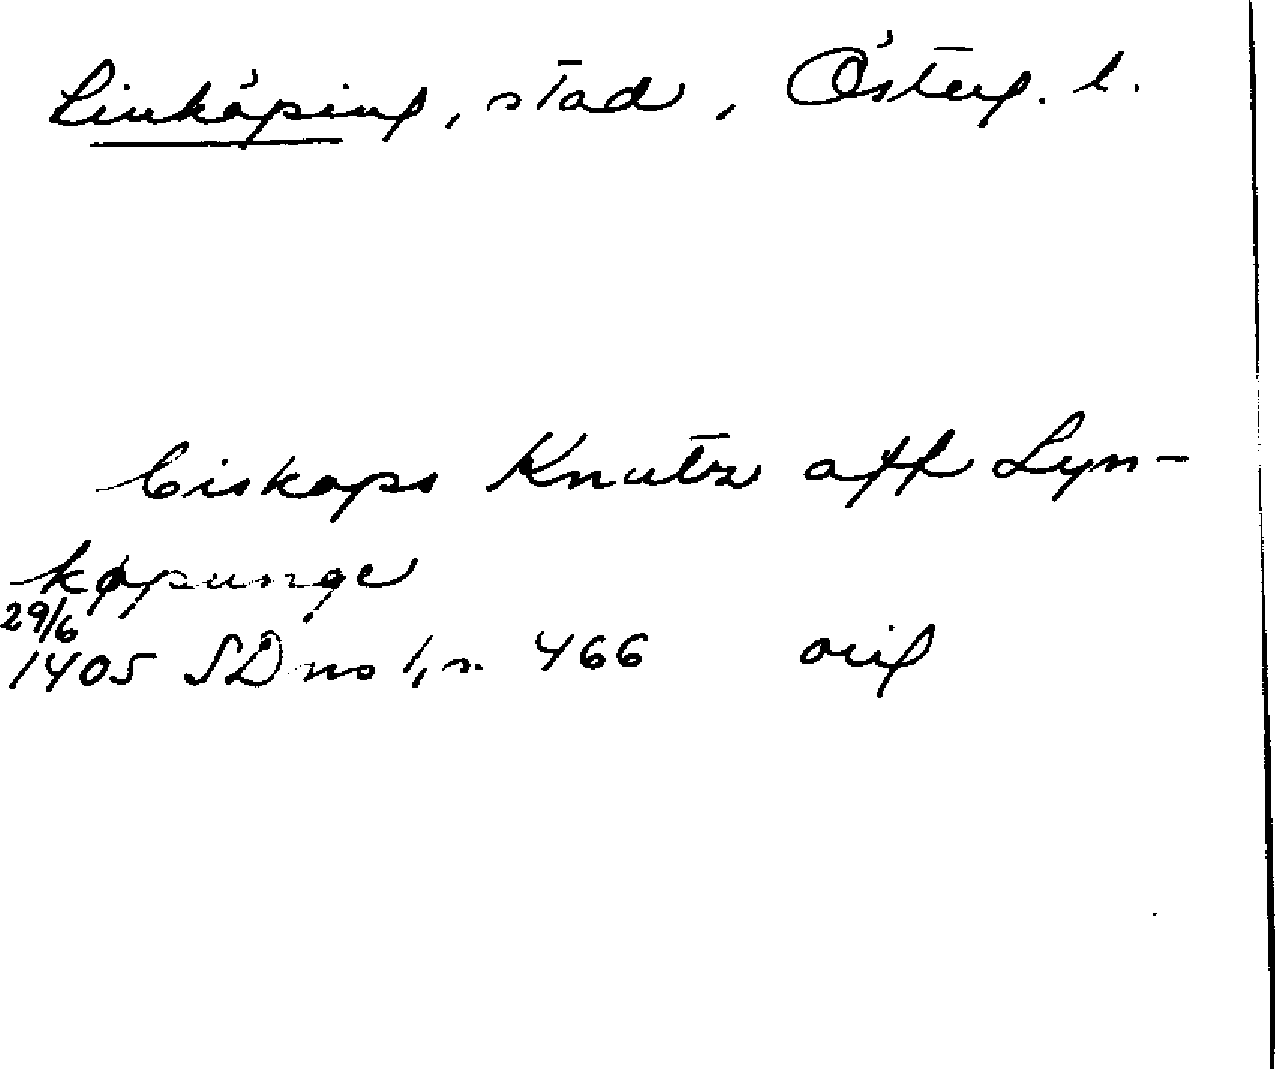 Linköping, stad, Österg. l.
biskops Knutz aff Lyn-
køpunge
29/6
1405 SDns 1, s. 466 orig